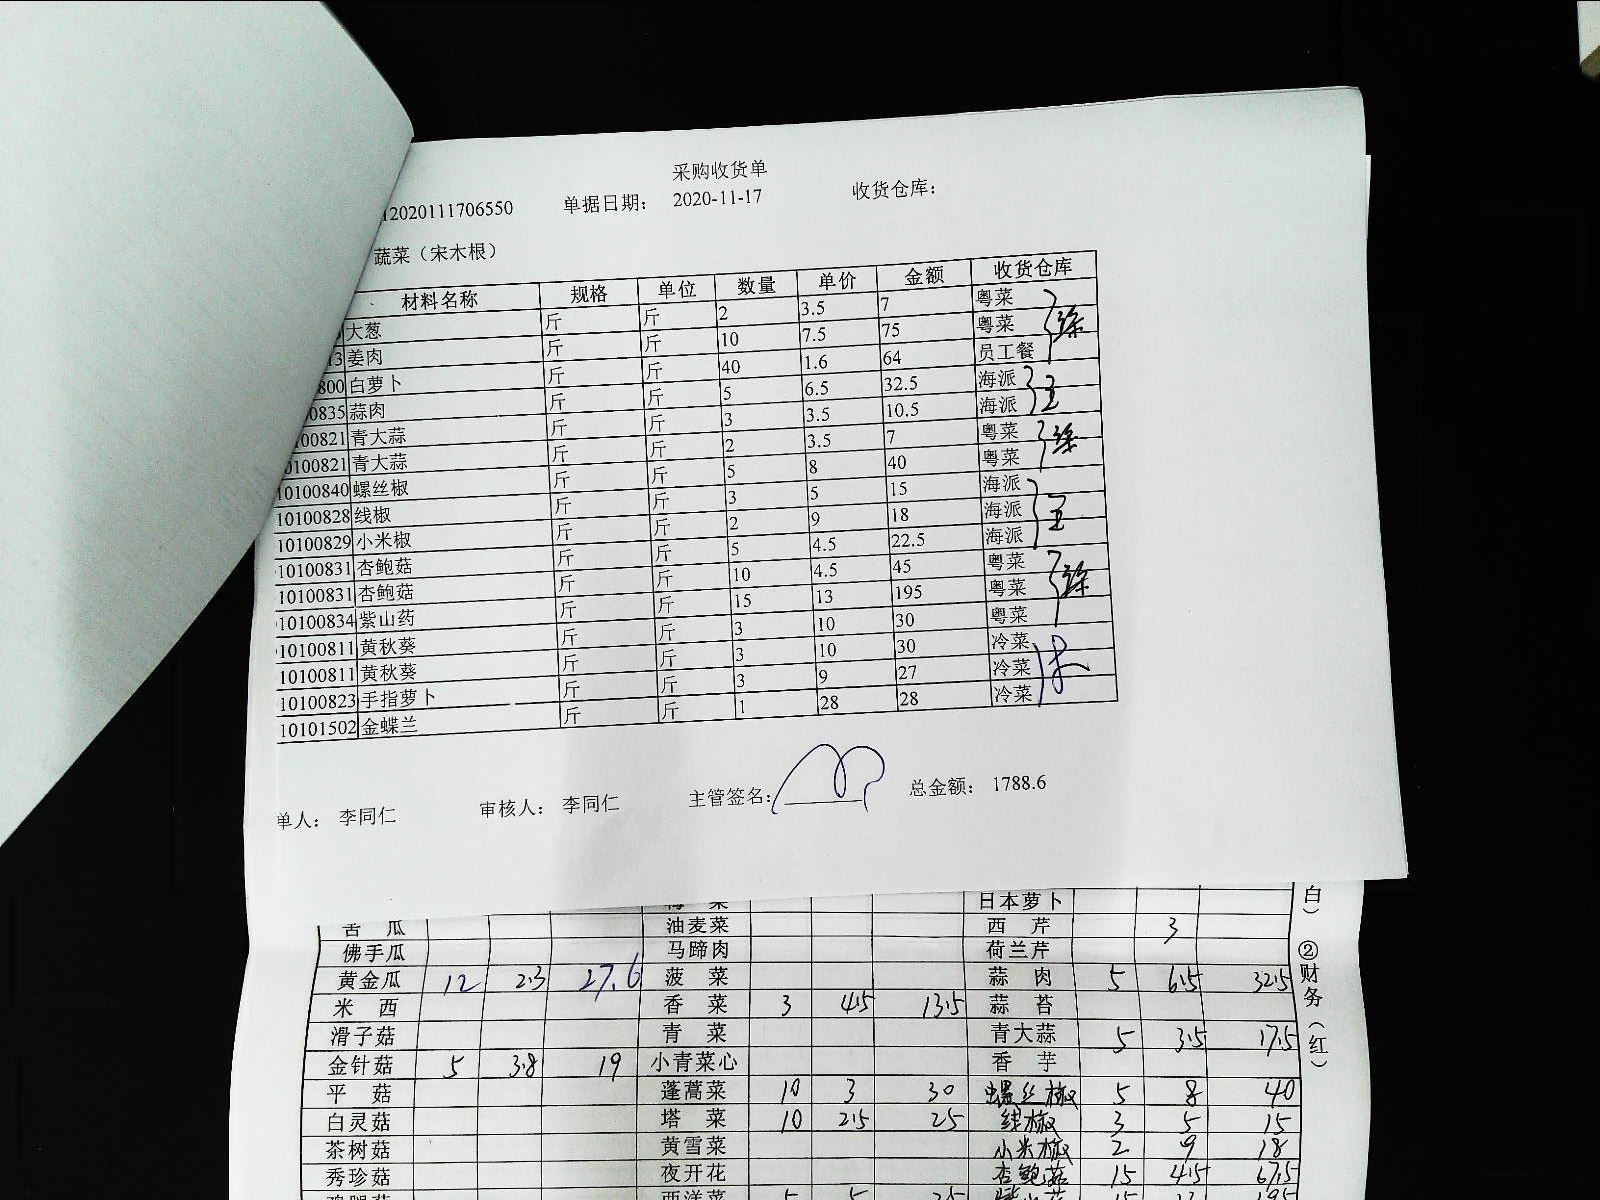 采购收货单
12020111706550 单据日期： 2020-11-17 收货仓库：
蔬菜（宋木根）
材料名称 规格 单位 数量 单价 金额 收货仓库
大葱 斤 斤 2 3.5 7 粤菜
13 姜肉 斤 斤 10 7.5 75 粤菜 徐
800 白萝卜 斤 斤 40 1.6 64 员工餐
0835 蒜肉 斤 斤 5 6.5 32.5 海派 王
100821 青大蒜 斤 斤 3 3.5 10.5 海派
0100821 青大蒜 斤 斤 2 3.5 7 粤菜 徐
10100840 螺丝椒 斤 斤 5 8 40 粤菜
10100828 线椒 斤 斤 3 5 15 海派
10100829 小米椒 斤 斤 2 9 18 海派 王
10100831 杏鲍菇 斤 斤 5 4.5 22.5 海派
10100831 杏鲍菇 斤 斤 10 4.5 45 粤菜
10100834 紫山药 斤 斤 15 13 195 粤菜 徐
10100811 黄秋葵 斤 斤 3 10 30 粤菜
10100811 黄秋葵 斤 斤 3 10 30 冷菜
10100823 手指萝卜 斤 斤 3 9 27 冷菜
10101502 金蝶兰 斤 斤 1 28 28 冷菜
单人： 李同仁 审核人： 李同仁 主管签名： 总金额： 1788.6
日本萝卜
苦瓜 油麦菜 西芹 3
佛手瓜 马蹄肉 荷兰芹
黄金瓜 12 2.3 27.6 菠菜 蒜肉 5 6.5 32.5
米西 香菜 3 4.5 13.5 蒜苔
滑子菇 青菜 青大蒜 5 3.5 17.5
金针菇 5 3.8 19 小青菜心 香芋
平菇 蓬蒿菜 10 3 30 螺丝椒 5 8 40
白灵菇 塔菜 10 2.5 25 线椒 3 5 15
茶树菇 黄雪菜 小米椒 2 9 18
秀珍菇 夜开花 杏鲍菇 15 4.5 67.5
西洋菜 5 5 25 15 13 195
白） ②财务（红）